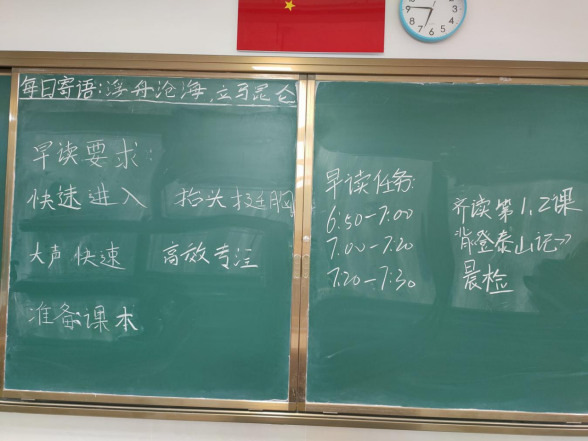 每日寄语:浮舟沧海,立马昆仑
早读要求:
快速进入 抬头挺胸
大声快速 高效专注
准备课本
早读任务:
6:50-7:00 齐读第1,2课
7:00-7:20 背登泰山记》
7:20-7:30 晨检